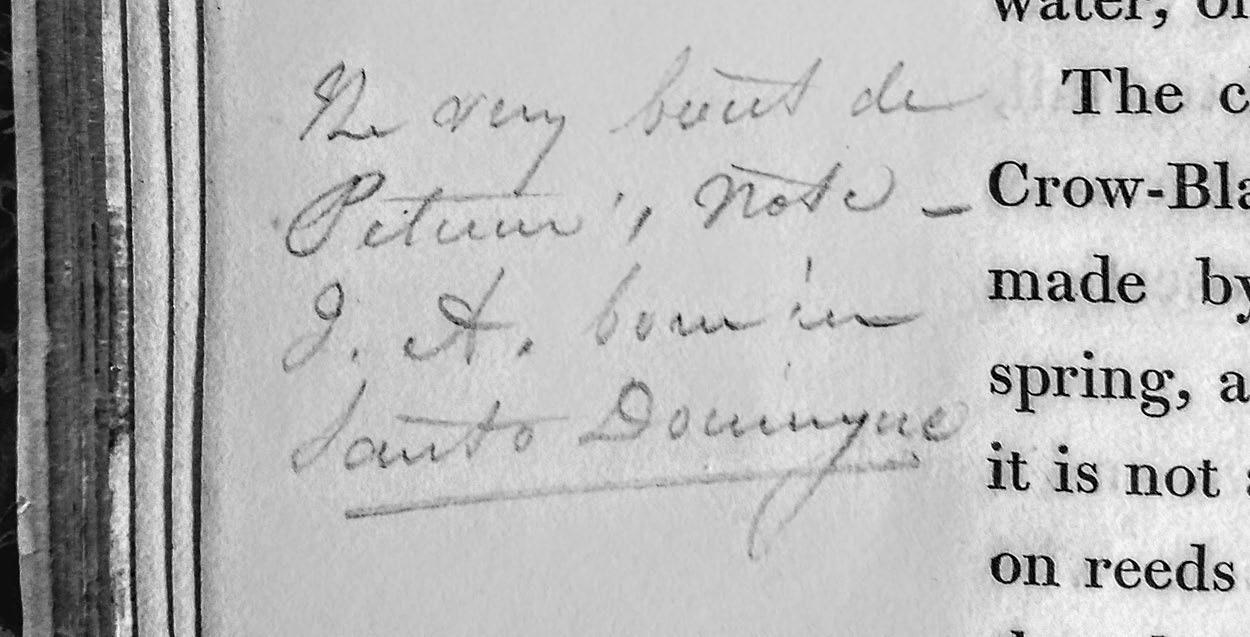 water, or
The c
The very
Crow-Bla
Note –
made by
J. A. born in
spring, a
Santo Domingue
it is not
on reeds